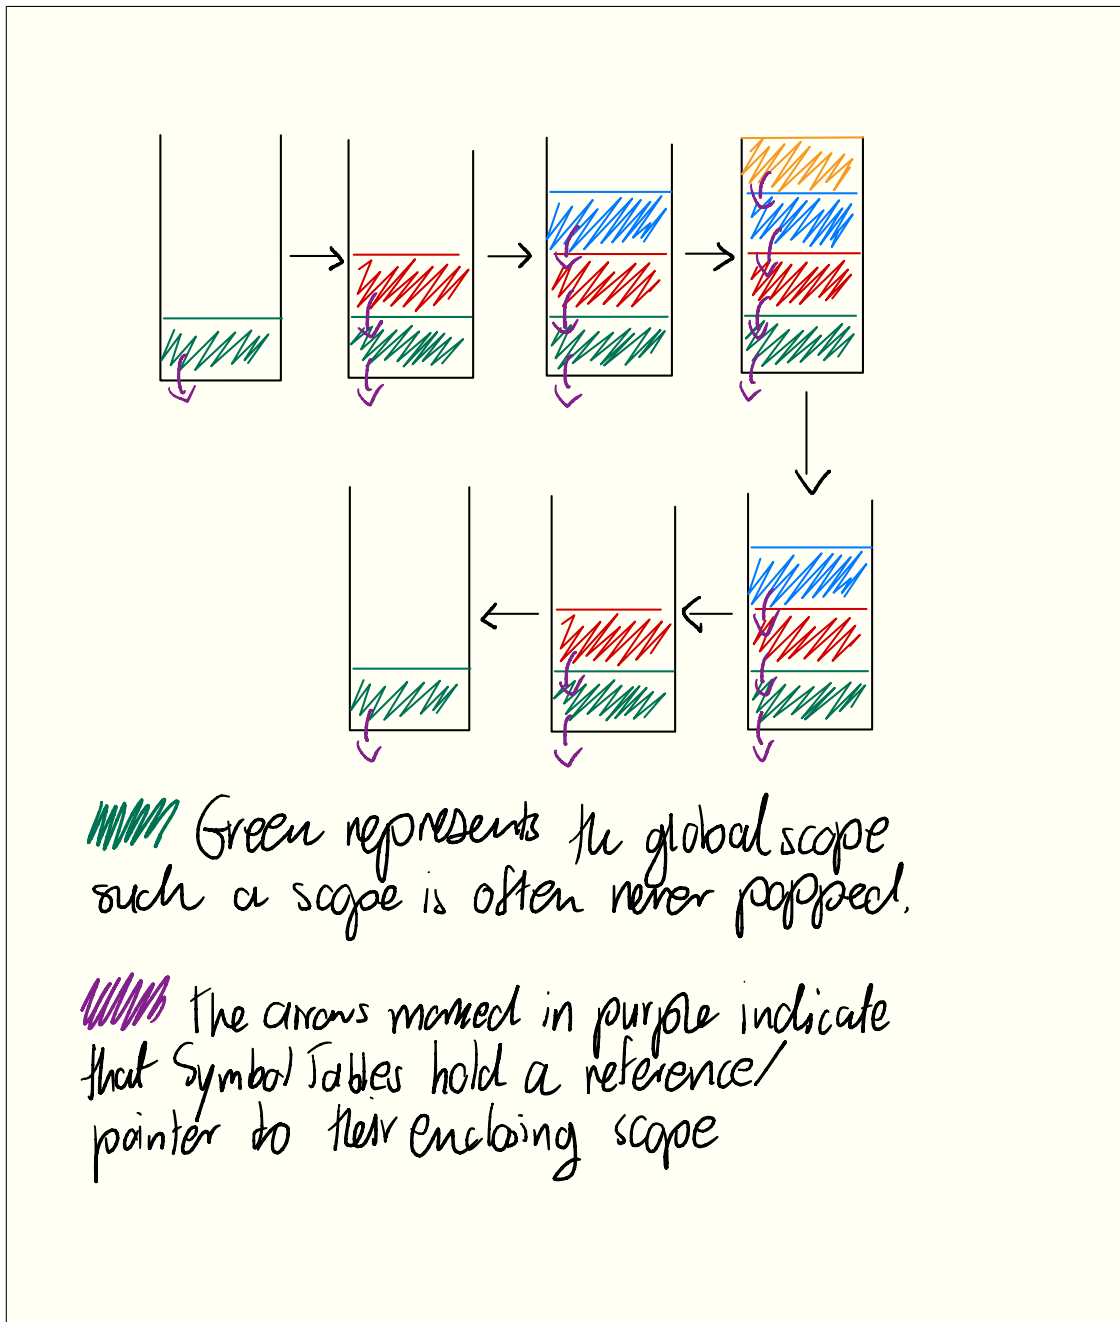 Green represents the global scope
such a scope is often never popped.
The arrows marked in purple indicate
that Symbol Tables hold a reference/
pointer to their enclosing scope